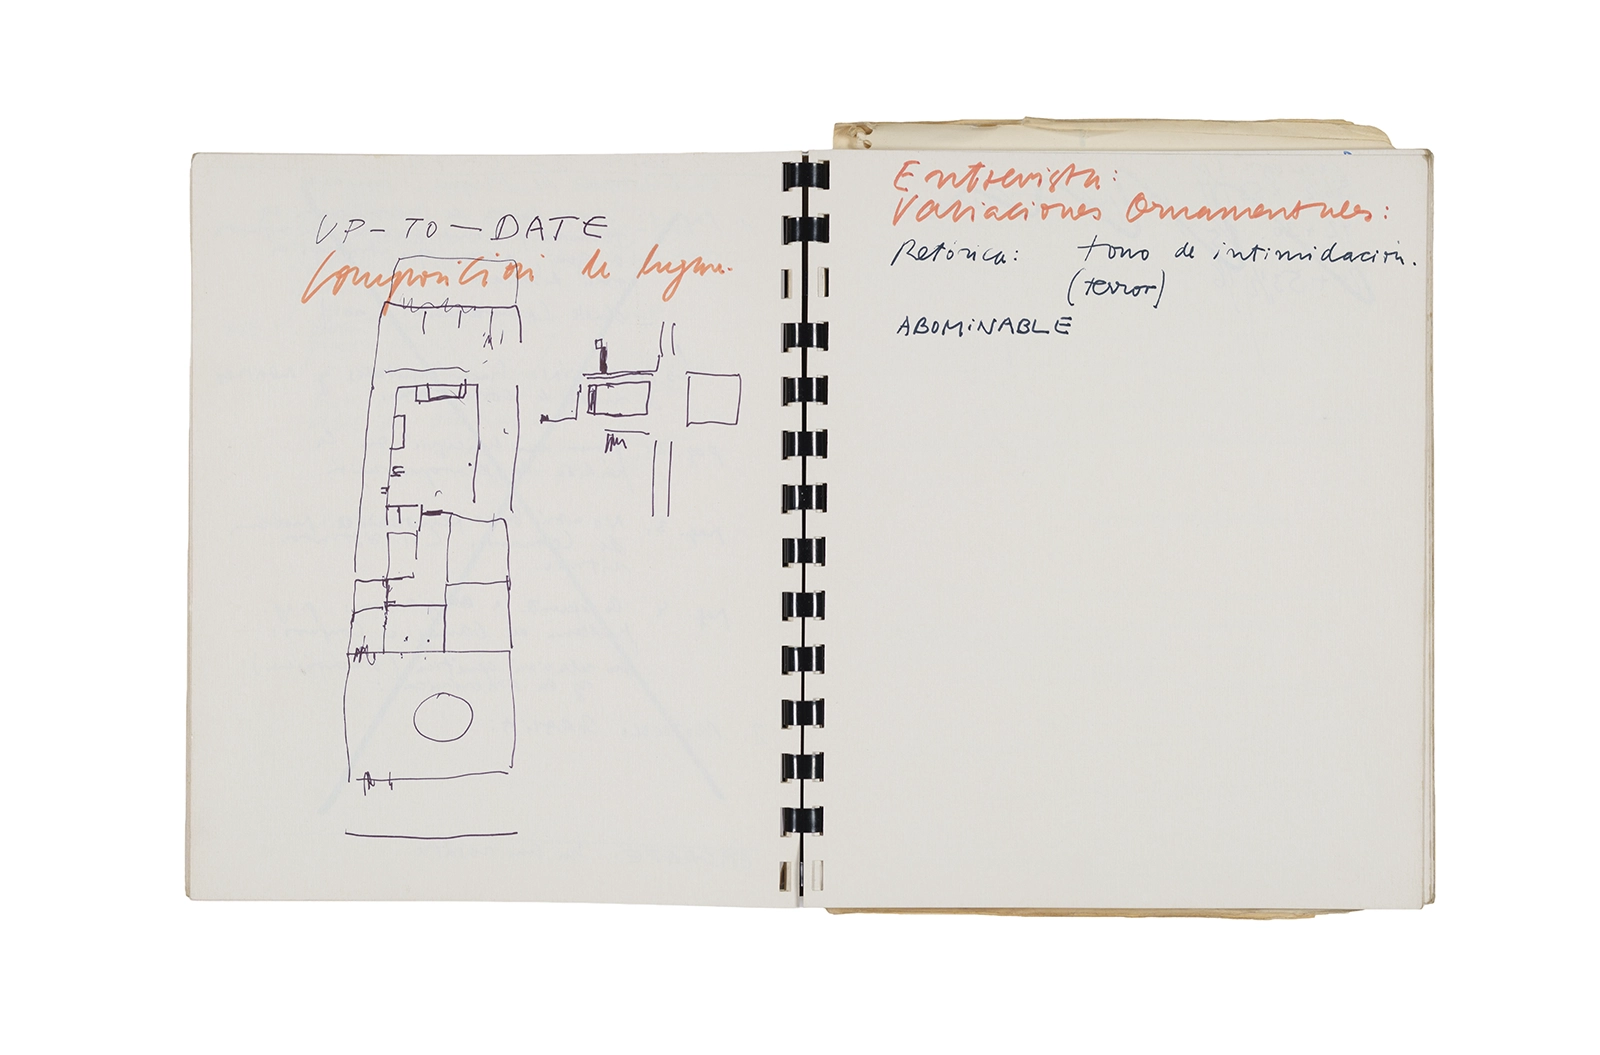 UP-TO-DATE
Composición de lugar.
Entrevista:
Variaciones Ornamentales:
Retórica: tono de intimidación.
(terror)
ABOMINABLE